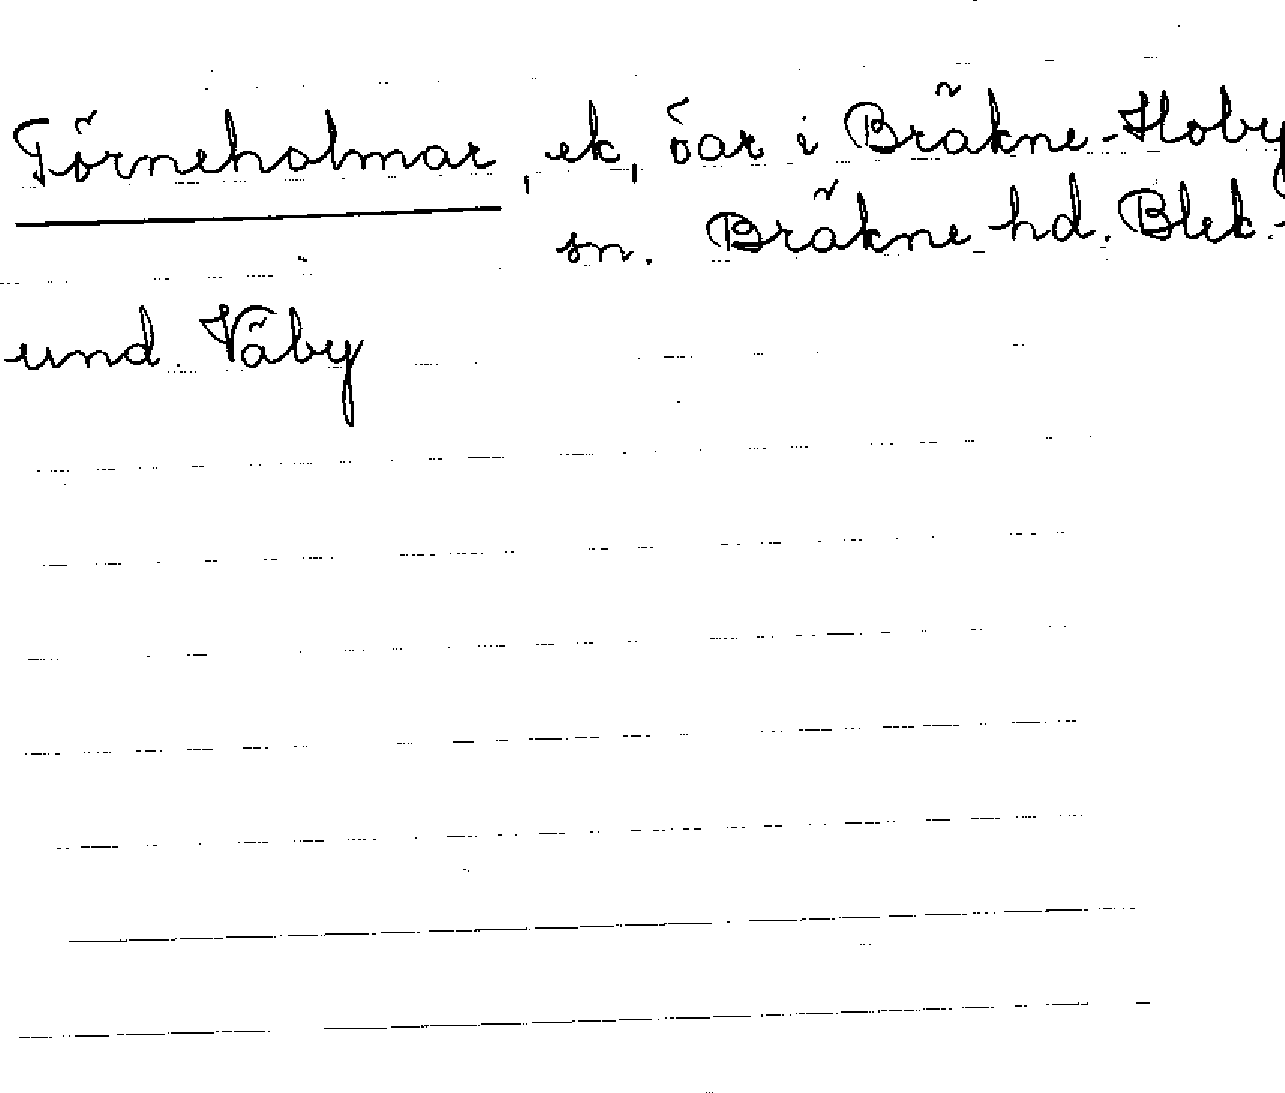 Törneholmar, ek, öar i Bräkne-Hoby
sn. Bräkne hd. Blek.
und. Väby